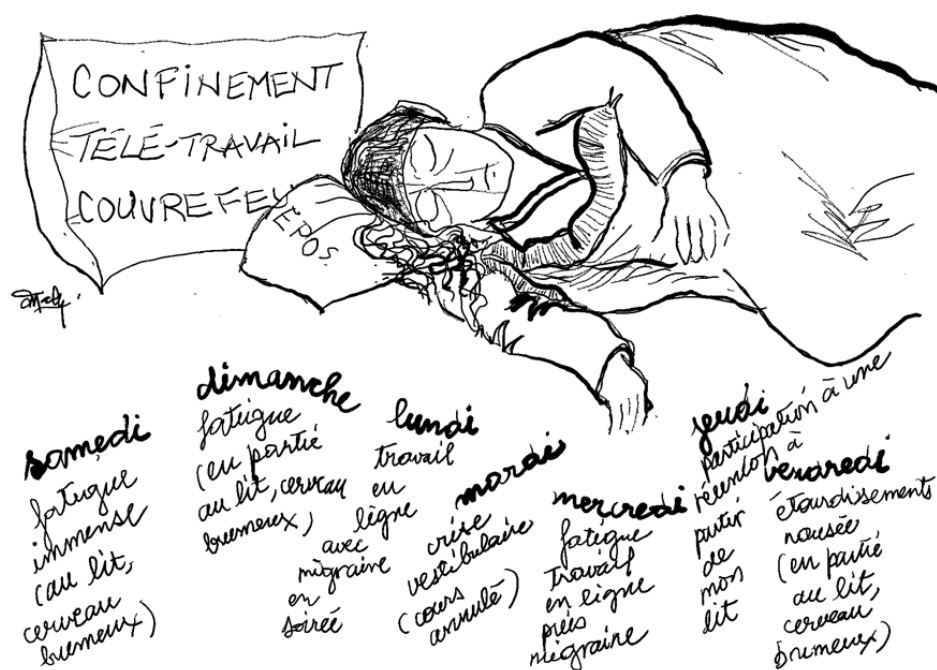 CONFINEMENT
TÉLÉ-TRAVAIL
COUVREFEU
REPOS
samedi
fatigue
immense
(au lit,
cerveau
brumeux)
dimanche
fatigue
(en partie
au lit, cerveau
brumeux)
lundi
travail
en
ligne
avec
migraine
en
soirée
mardi
crise
vestibulaire
(cours
annulé)
mercredi
fatigue
travail
en ligne
puis
migraine
jeudi
participation à une
réunion à
partir
de
mon
lit
vendredi
étourdissements
nausée
(en partie
au lit,
cerveau
brumeux)